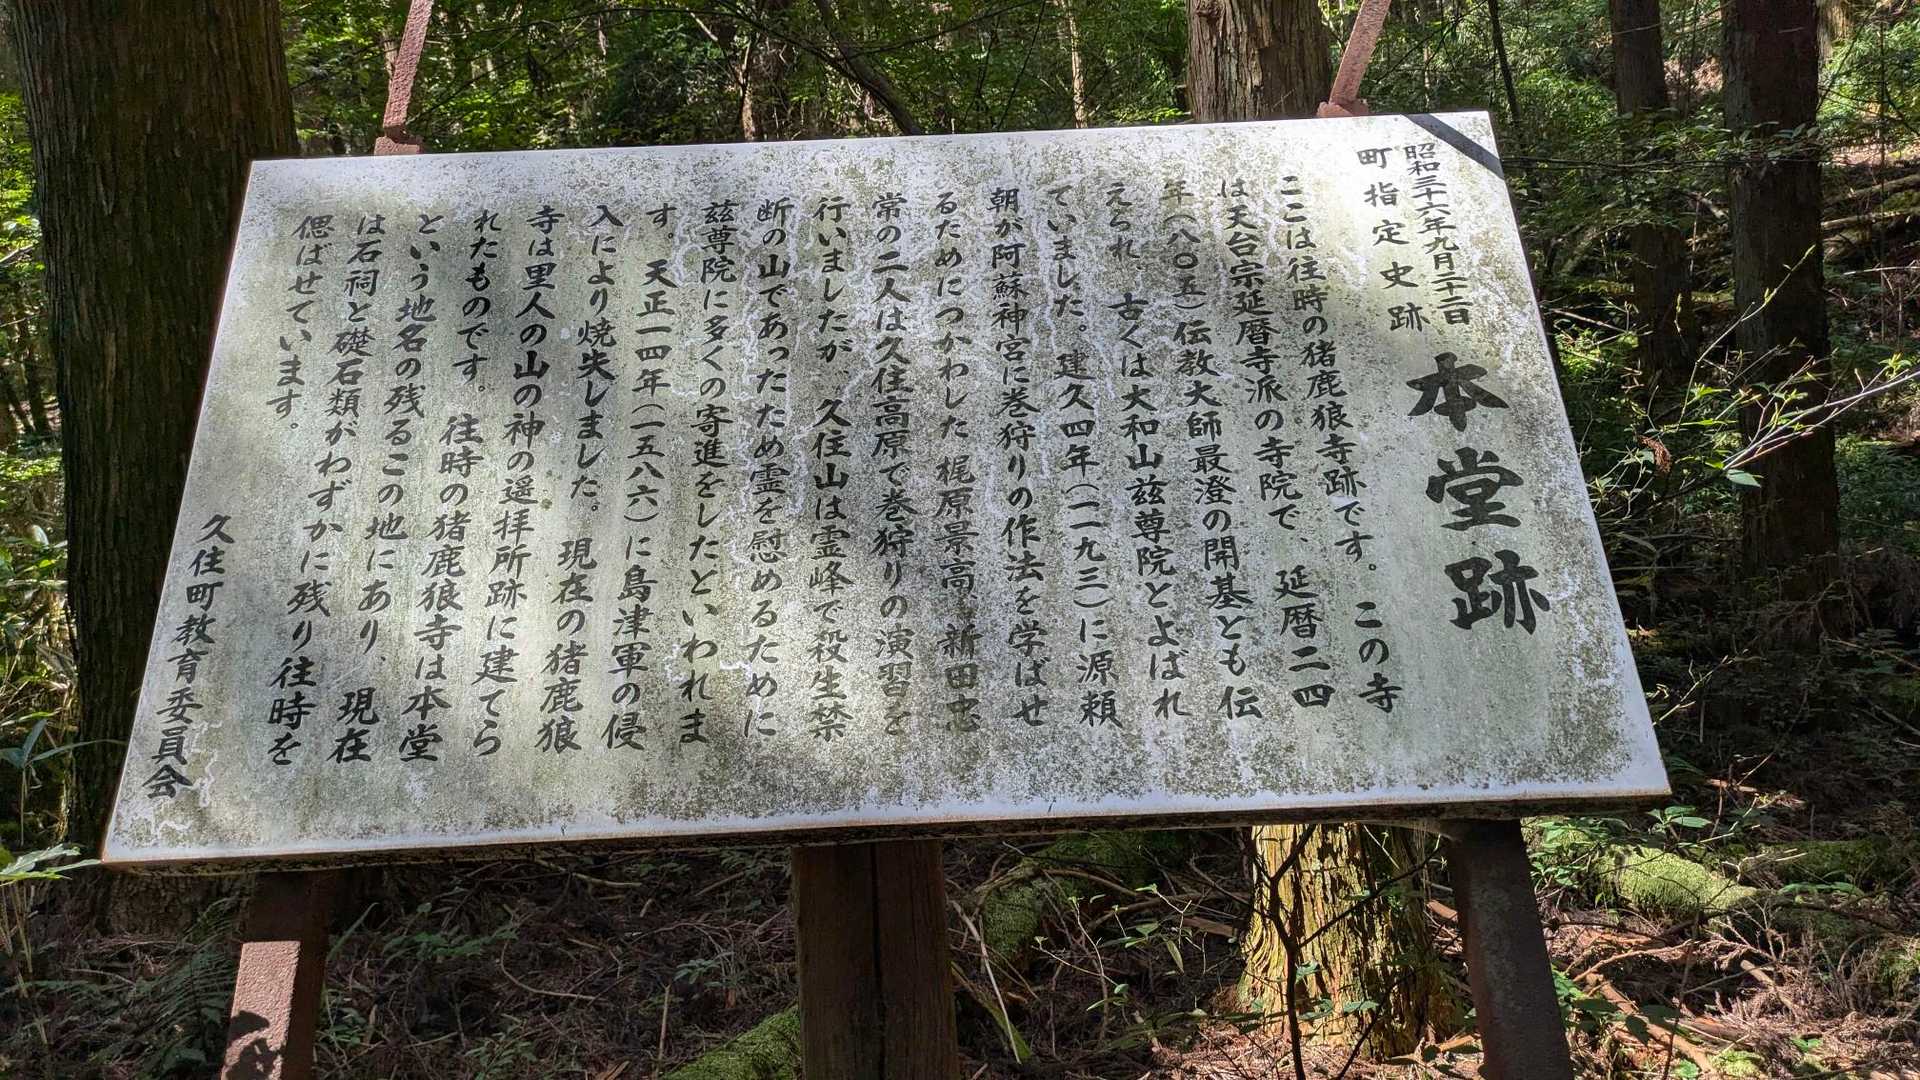 昭和三十六年九月二十二日
町指定史跡
本堂跡
ここは往時の猪鹿狼寺跡です。この寺
は天台宗延暦寺派の寺院で、延暦二四
年(八〇五)伝教大師最澄の開基とも伝
えられ、古くは大和山茲尊院とよばれ
ていました。建久四年(一一九三)に源頼
朝が阿蘇神宮に巻狩りの作法を学ばせ
るためにつかわした梶原景高、新田忠
常の二人は久住高原で巻狩りの演習を
行いましたが、久住山は霊峰で殺生禁
断の山であったため霊を慰めるために
茲尊院に多くの寄進をしたといわれま
す。天正一四年(一五八六)に島津軍の侵
入により焼失しました。現在の猪鹿狼
寺は里人の山の神の遥拝所跡に建てら
れたものです。往時の猪鹿狼寺は本堂
という地名の残るこの地にあり、現在
は石祠と礎石類がわずかに残り往時を
偲ばせています。
久住町教育委員会